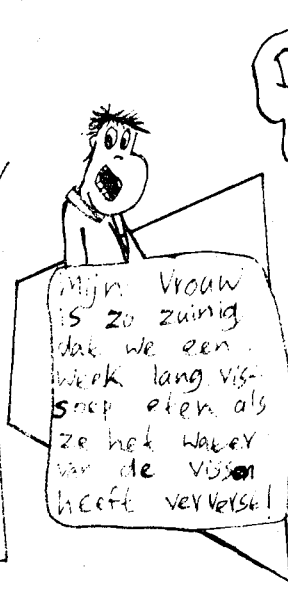 Mijn Vrouw
is zo zuinig
dat we een
week lang vis-
soep eten als
ze het water
van de vissen
heeft ververst!